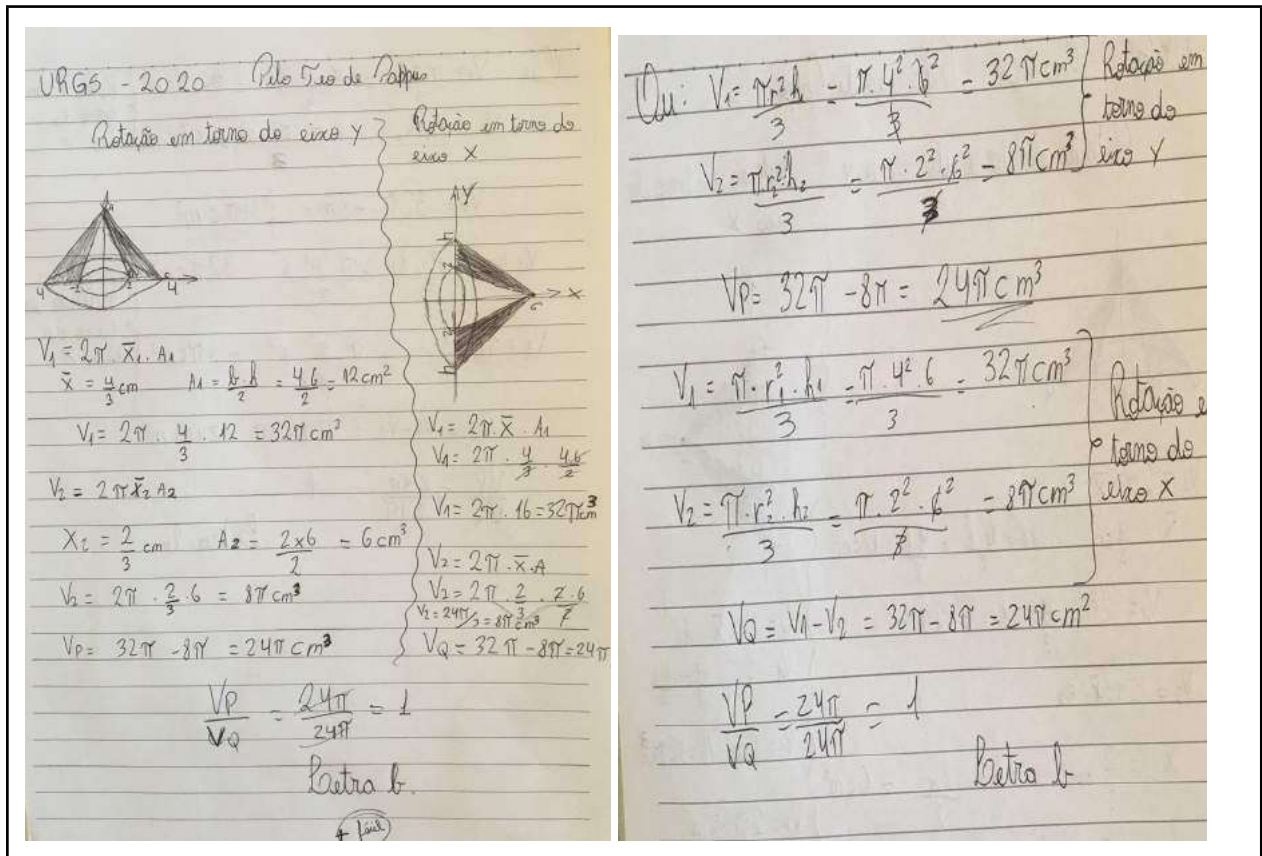 URGS - 2020 Pelo Teo de Pappus
Rotação em torno do eixo Y
V₁ = 2π . x̄₁ . A₁
x̄ = 4/3 cm A₁ = b.h/2 = 4.6/2 = 12 cm²
V₁ = 2π . 4/3 . 12 = 32π cm³
V₂ = 2π x̄₂ A₂
X₂ = 2/3 cm A₂ = 2x6/2 = 6 cm³
V₂ = 2π . 2/3 . 6 = 8π cm³
VP = 32π - 8π = 24π cm³
Rotação em torno do
eixo X
Y
X
V₁ = 2π . x̄ . A₁
V₁ = 2π . 4/3 . 4.6/2
V₁ = 2π . 16 = 32π cm³
V₂ = 2π . x̄ . A
V₂ = 2π . 2/3 . 2.6/2
V₂ = 24π/3 = 8π cm³
VQ = 32π - 8π = 24π
VP/VQ = 24π/24π = 1
Letra b.
+ fácil
Ou: V₁ = πr²h/3 = π.4².6²/3 = 32π cm³
V₂ = πr₂².h₂/3 = π.2².6²/3 = 8π cm³
Rotação em
torno do
eixo Y
VP = 32π - 8π = 24π cm³
V₁ = π.r₁².h₁/3 = π.4².6/3 = 32π cm³
V₂ = π.r₂².h₂/3 = π.2².6²/3 = 8π cm³
Rotação e
torno do
eixo X
VQ = V₁ - V₂ = 32π - 8π = 24π cm²
VP/VQ = 24π/24π = 1
Letra b